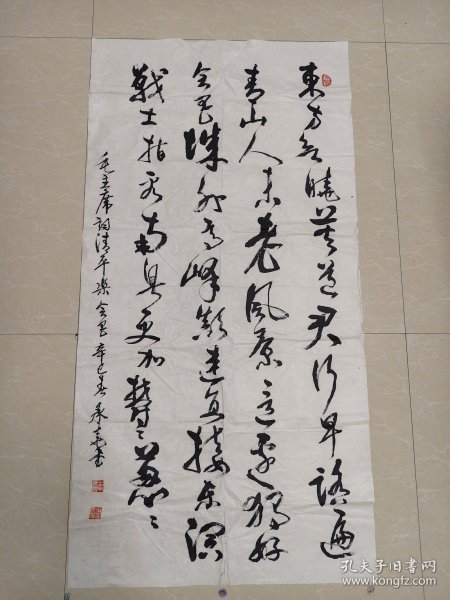 東方欲曉莫道君行早踏遍
青山人未老風景這邊獨好
会昌城外高峰顛連直接东溟
戰士指看南粤更加鬱々蔥々
毛主席詞清平樂会昌 辛巳春承書
孔夫子旧书网